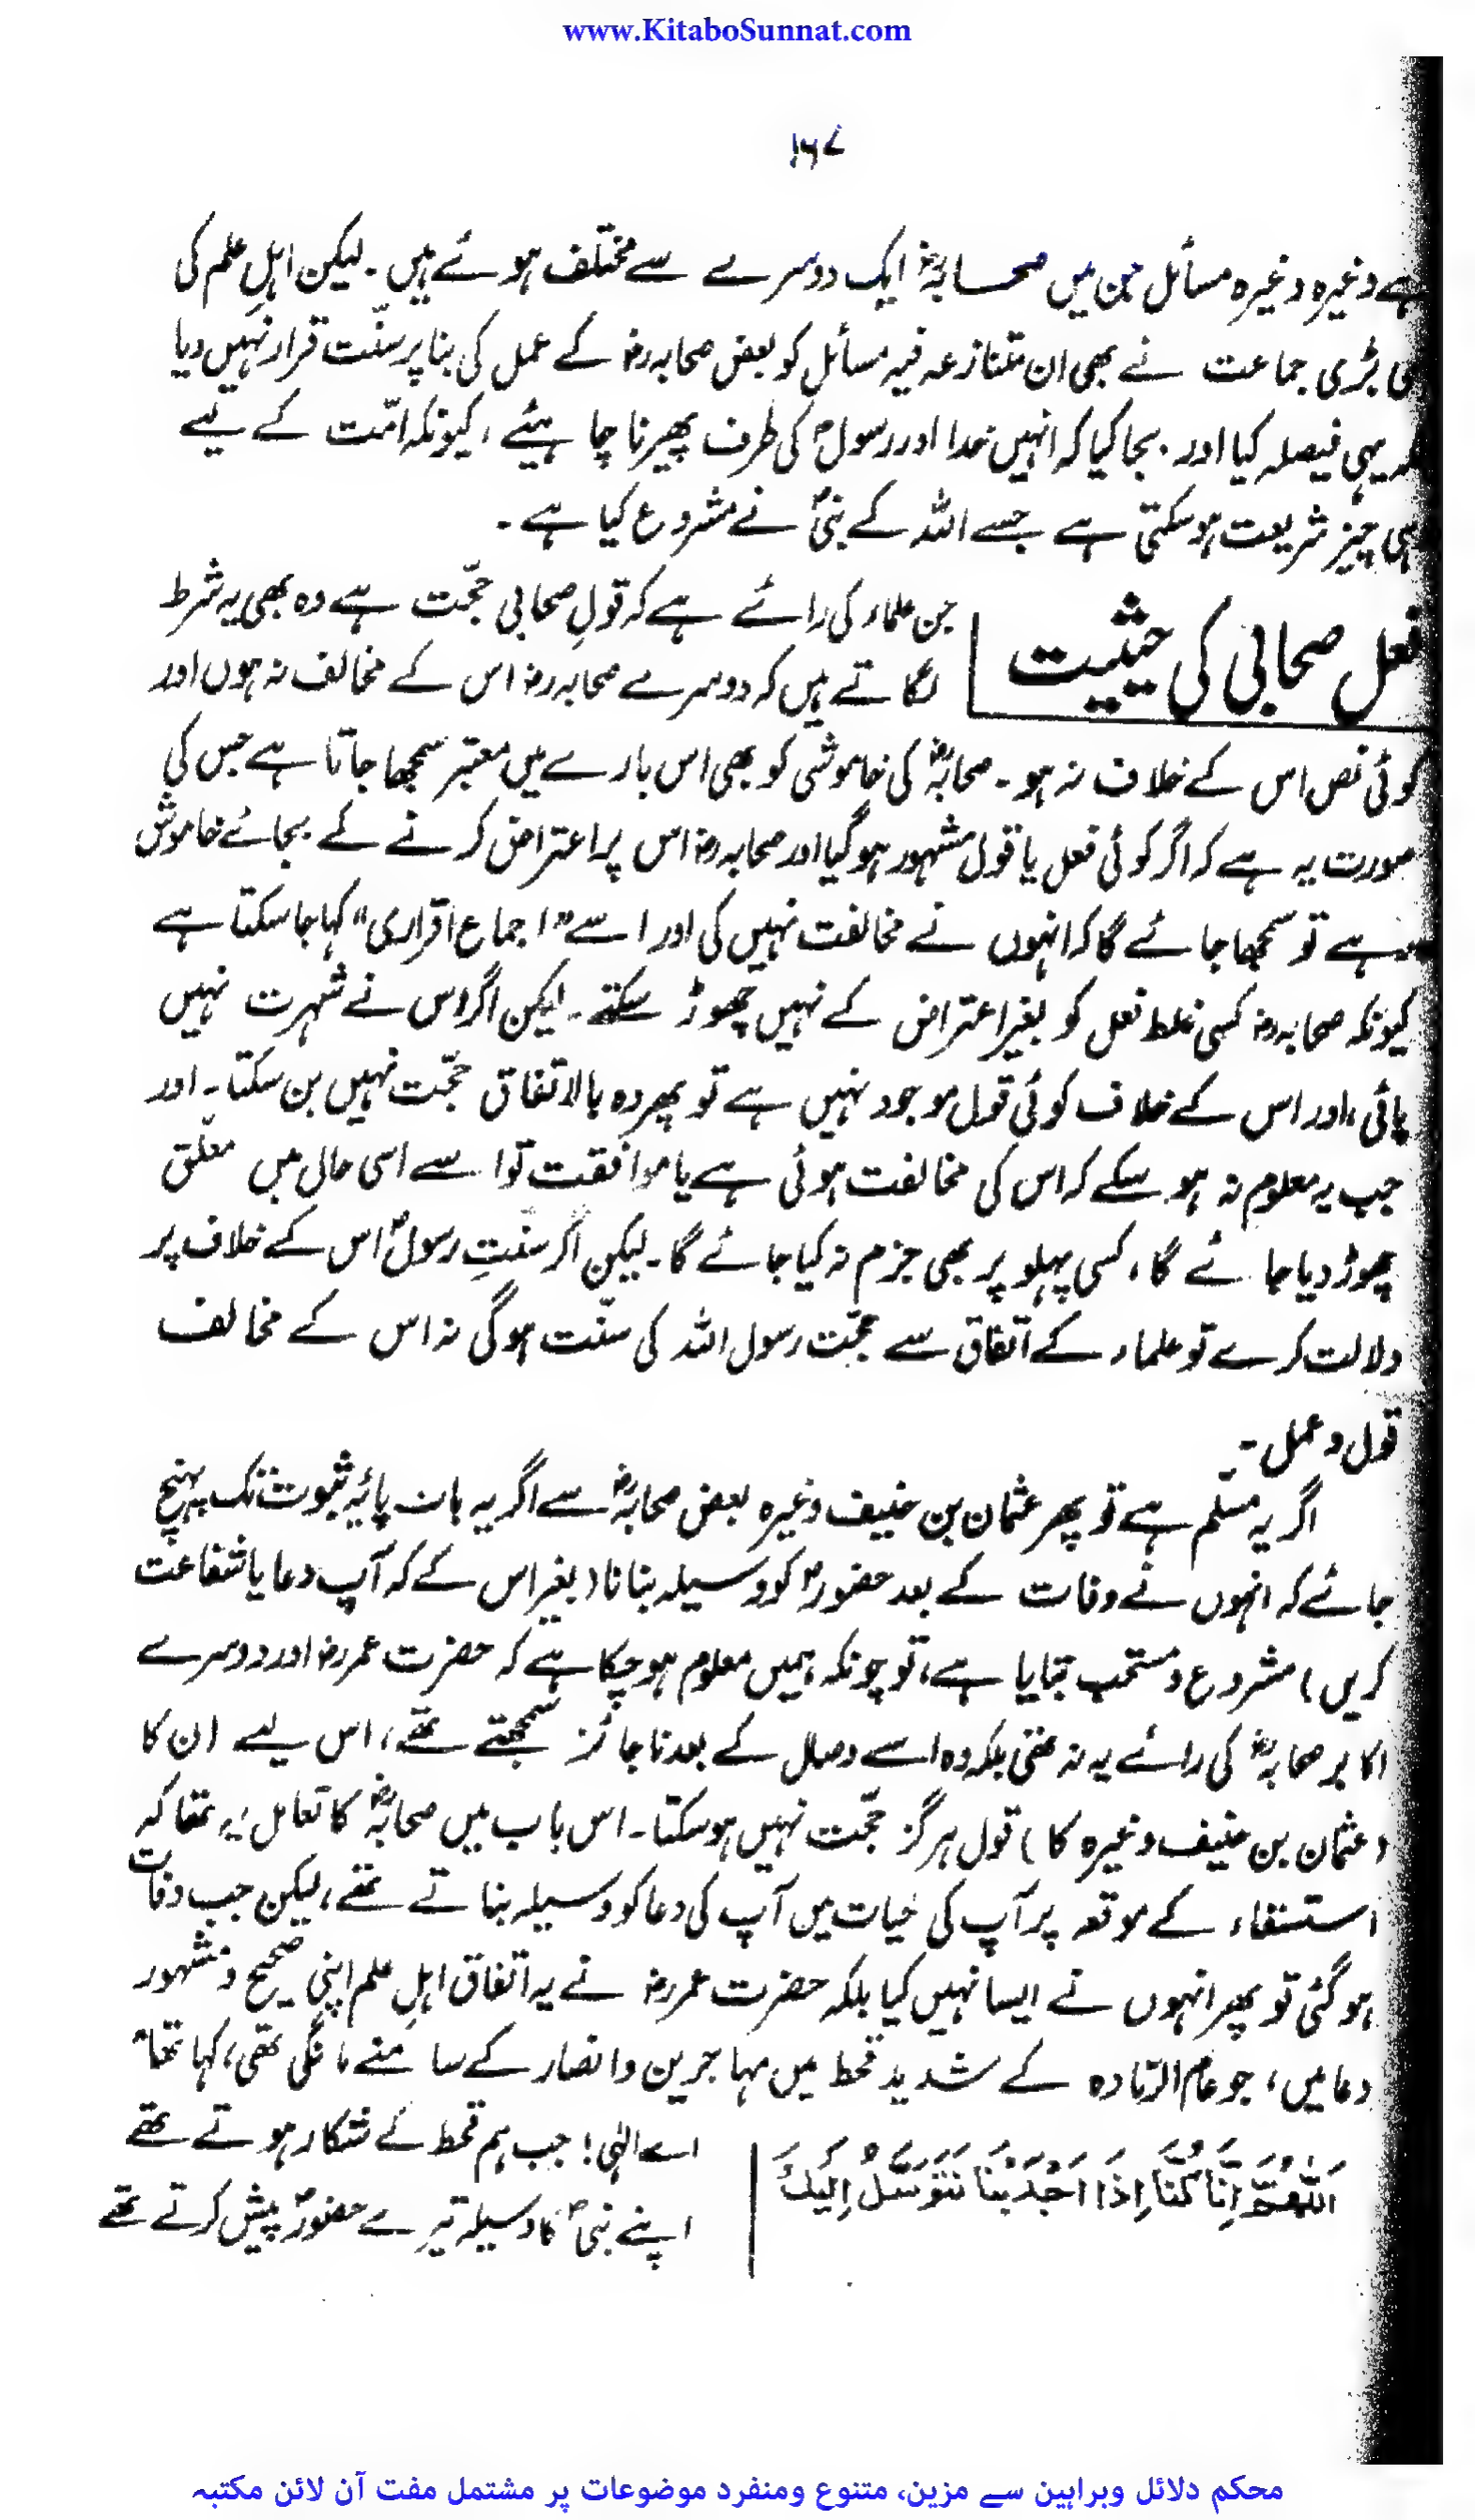 www.KitaboSunnat.com
۱۶۷
ہے وغیرہ وغیرہ مسائل جن میں صحابہؓ ایک دوسرے سے مختلف ہوئے ہیں ۔ لیکن اہلِ علم کی
بڑی جماعت نے بھی ان متنازعہ فیہ مسائل کو بعض صحابہ رضؓ کے عمل کی بنا پر سنّت قرار نہیں دیا
یہی فیصلہ کیا اور بجا کیا کہ انہیں خدا اور رسولؐ کی طرف پھیرنا چاہیئے ، کیونکہ امّت کے لیے
چیز شریعت ہو سکتی ہے جسے اللہ کے نبیؐ نے مشروع کیا ہے ۔
فعل صحابی کی حیثیت
جن علماء کی رائے ہے کہ قولِ صحابی حجّت ہے وہ بھی یہ شرط
لگاتے ہیں کہ دوسرے صحابہ رضؓ اس کے مخالف نہ ہوں اور
کوئی نص اس کے خلاف نہ ہو ۔ صحابہؓ کی خاموشی کو بھی اس بارے میں معتبر سمجھا جاتا ہے جس کی
صورت یہ ہے کہ اگر کوئی فعل یا قول مشہور ہو گیا اور صحابہ رضؓ اس پر اعتراض کرنے کے بجائے خاموش
رہے تو سمجھا جائے گا کہ انہوں نے مخالفت نہیں کی اور اسے "اجماع اقراری" کہا جا سکتا ہے
کیونکہ صحابہ رضؓ کسی غلط فعل کو بغیر اعتراض کے نہیں چھوڑ سکتے ۔ لیکن اگر اس نے شہرت نہیں
پائی ، اور اس کے خلاف کوئی قول موجود نہیں ہے تو پھر وہ بالاتفاق حجّت نہیں بن سکتا ۔ اور
جب یہ معلوم نہ ہو سکے کہ اس کی مخالفت ہوئی ہے یا موافقت تو اسے اسی حال میں معلّق
چھوڑ دیا جائے گا ، کسی پہلو پر بھی جزم نہ کیا جائے گا ۔ لیکن اگر سنّتِ رسولؐ اس کے خلاف پر
دلالت کرے تو علماء کے اتفاق سے حجّت رسول اللہ کی سنّت ہوگی نہ اس کے مخالف
قول و عمل ۔
اگر یہ مسلم ہے تو پھر عثمان بن حنیف وغیرہ بعض صحابہؓ سے اگر یہ بات پایۂ ثبوت تک پہنچ
جائے کہ انہوں نے وفات کے بعد حضورؐ کو وسیلہ بنانا ( بغیر اس کے کہ آپ دعا یا شفاعت
کریں ) مشروع و مستحب بتایا ہے ، تو چونکہ ہمیں معلوم ہو چکا ہے کہ حضرت عمر رضؓ اور دوسرے
اکابر صحابہؓ کی رائے یہ نہ تھی بلکہ وہ اسے وصال کے بعد ناجائز سمجھتے تھے ، اس لیے ان کا
( عثمان بن حنیف وغیرہ کا ) قول ہرگز حجّت نہیں ہو سکتا ۔ اس باب میں صحابہؓ کا تعامل یہ تھا کہ
استسقاء کے موقعہ پر آپ کی حیات میں آپ کی دعا کو وسیلہ بناتے تھے ، لیکن جب وفات
ہو گئی تو پھر انہوں نے ایسا نہیں کیا بلکہ حضرت عمر رضؓ نے بہ اتفاق اہلِ علم اپنی صحیح و مشہور
دعا میں ، جو عام الرّمادہ کے شدید قحط میں مہاجرین و انصار کے سامنے مانگی تھی ، کہا تھا "
اَللّٰھُمَّ اِنَّا كُنَّا اِذَا اَجْدَبْنَا نَتَوَسَّلُ اِلَيْكَ
اے الٰہی ! جب ہم قحط کے شکار ہوتے تھے
اپنے نبیؐ کا وسیلہ تیرے حضور پیش کرتے تھے
محکم دلائل وبراہین سے مزین، متنوع ومنفرد موضوعات پر مشتمل مفت آن لائن مکتبہ